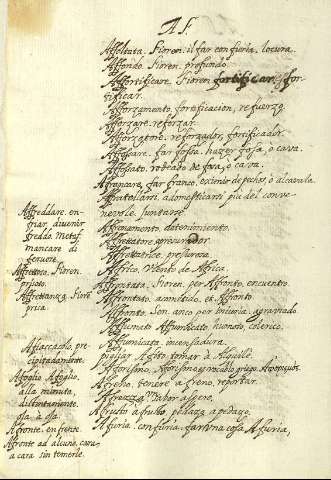 Af.
Affoltata. Fioren. il far con furia, locura.
Affondo. Fioren. profundo.
Affortificare. Fioren. fortificar, for-
tificar.
Afforzamento. fortificacion, refuerzo.
Afforzare. reforzar.
reforzador, fortificador.
Affossare. far fossa. hazer fossa, o cava.
Affossato. rodeado de fossa, o cava.
Affrancare, far franco, eximir de pechos, o alcavala
Affratellarsi. adomesticarsi piu del conve-
nevole. juntarse.
detenimiento.
Affrettatore apresurador
Affrettatrice, presurosa
Affrico, viento de Africa.
Affrontata. Fioren. per Affronto, encuentro.
Affrontato, et Affronto
Affronto. Son anco per ingiuria, agraviado
Affumato Affumicato, humoso, colerico.
Affumicata, incensadura.
pigliar Agito tomar à
Aforismo, vocabulo griego
Afreno, tenere a freno, reportar.
Afrezza
Afrusto a frusto, pedazo a pedazo.
Afuria. con furia. far una cosa Afuria,
Affreddare. en-
friar divenir
freddo. Metaf.
mancare di
fervore
Affrettoso. Fioren.
Affrettanza. Fioren.
prica.
Afiaccacollo, pre-
cipitadamente.
Afoglio Afoglio,
alla minuta,
distintamente
Afronte. en frente.
Afronte ad alcuno, cara
a cara sin temerle.